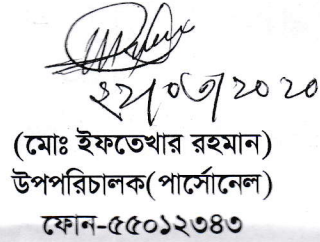 (মোঃ ইফতেখার রহমান)
উপপরিচালক(পার্সোনেল)
ফোন-৫৫০১২৩৪৩